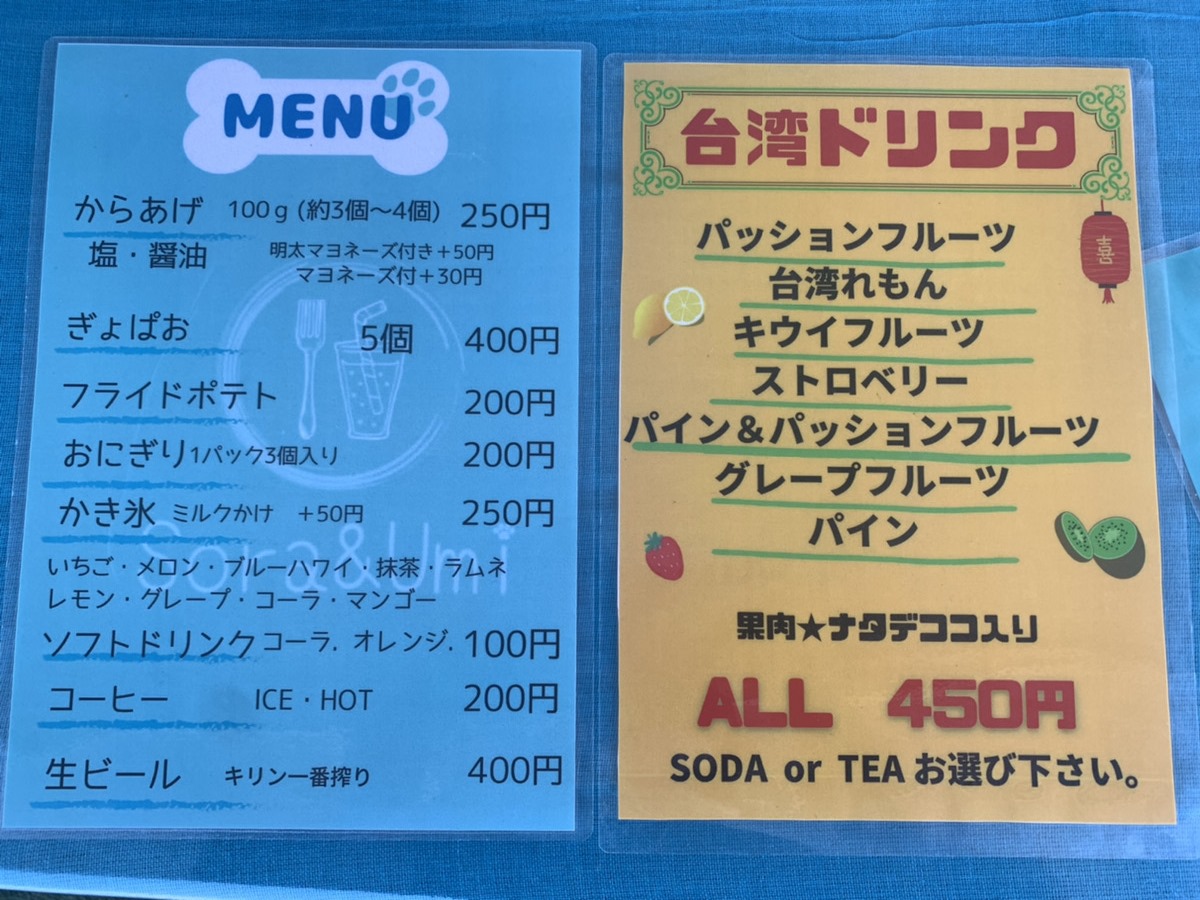 MENU
からあげ 100g (約3個〜4個) 250円
塩・醤油 明太マヨネーズ付き+50円
マヨネーズ付+30円
ぎょぱお 5個 400円
フライドポテト 200円
おにぎり 1パック3個入り 200円
かき氷 ミルクかけ +50円 250円
Sora&Umi
いちご・メロン・ブルーハワイ・抹茶・ラムネ
レモン・グレープ・コーラ・マンゴー
ソフトドリンク コーラ. オレンジ. 100円
コーヒー ICE・HOT 200円
生ビール キリン一番搾り 400円
台湾ドリンク
喜
パッションフルーツ
台湾れもん
キウイフルーツ
ストロベリー
パイン&パッションフルーツ
グレープフルーツ
パイン
果肉★ナタデココ入り
ALL 450円
SODA or TEA お選び下さい。